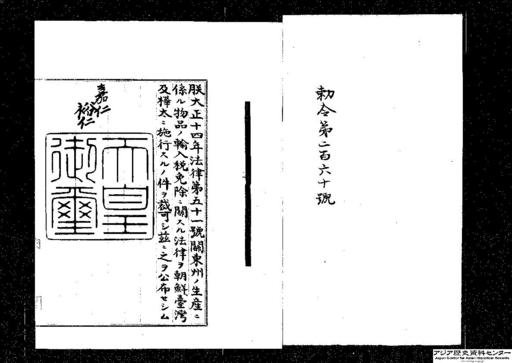 勅令第二百六十號
朕大正十四年法律第五十一號關東州ノ生産ニ
係ル物品ノ輸入税免除ニ關スル法律ヲ朝鮮臺灣
及樺太ニ施行スルノ件ヲ裁可シ茲ニ之ヲ公布セシム
嘉仁
裕仁
天皇
御璽
アジア歴史資料センター
Japan Center for Asian Historical Records